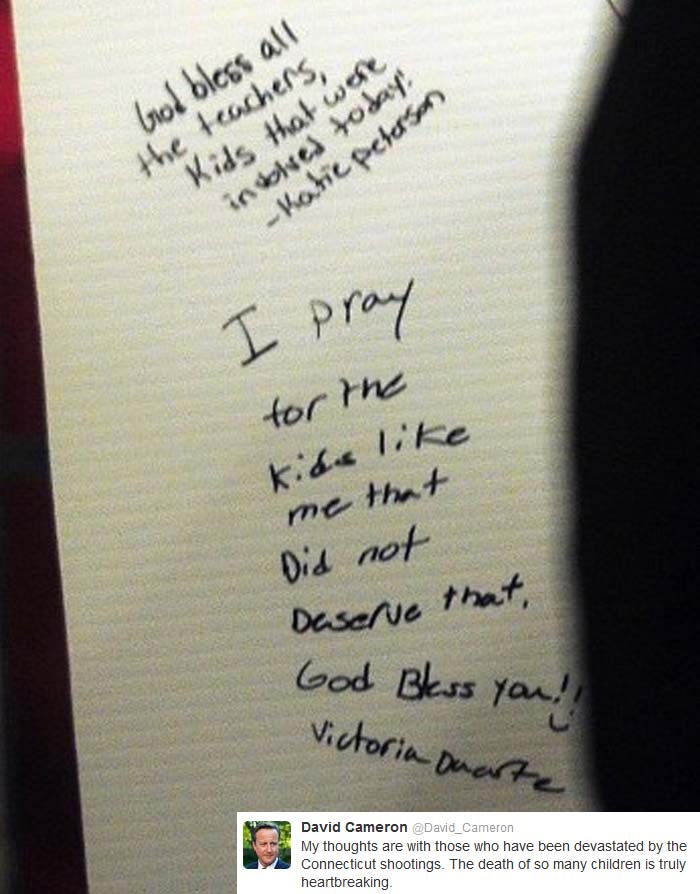 God bless all
the teachers,
Kids that were
involved today!
-Katie peterson
I pray
for the
kids like
me that
Did not
Deserve that.
God Bless you!!
Victoria Duarte
David Cameron @David_Cameron
My thoughts are with those who have been devastated by the
Connecticut shootings. The death of so many children is truly
heartbreaking.